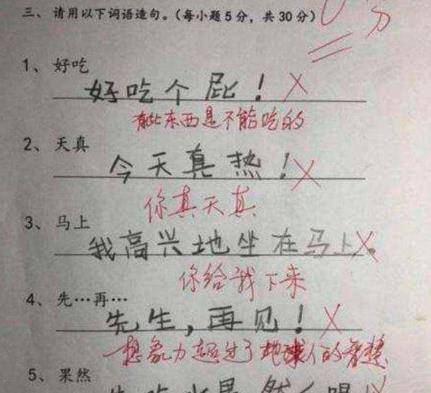 三、请用以下词语造句。（每小题5分，共30分）
1、好吃
好吃个屁！
有些东西是不能吃的
2、天真
今天真热！
你真天真
3、马上
我高兴地坐在马上。
你给我下来
4、先……再……
先生，再见！
想象力超过了地球人的智慧
5、果然